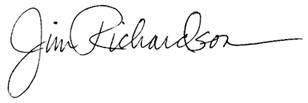 Jim Richardson